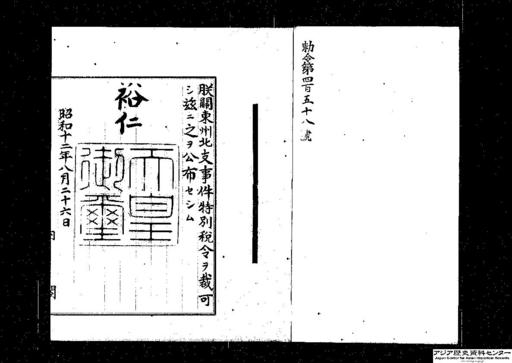 勅令第四百五十八號
朕關東州北支事件特別税令ヲ裁可
シ茲ニ之ヲ公布セシム
裕仁
天皇
御璽
昭和十二年八月二十六日
内閣
アジア歴史資料センター
Japan Center for Asian Historical Records